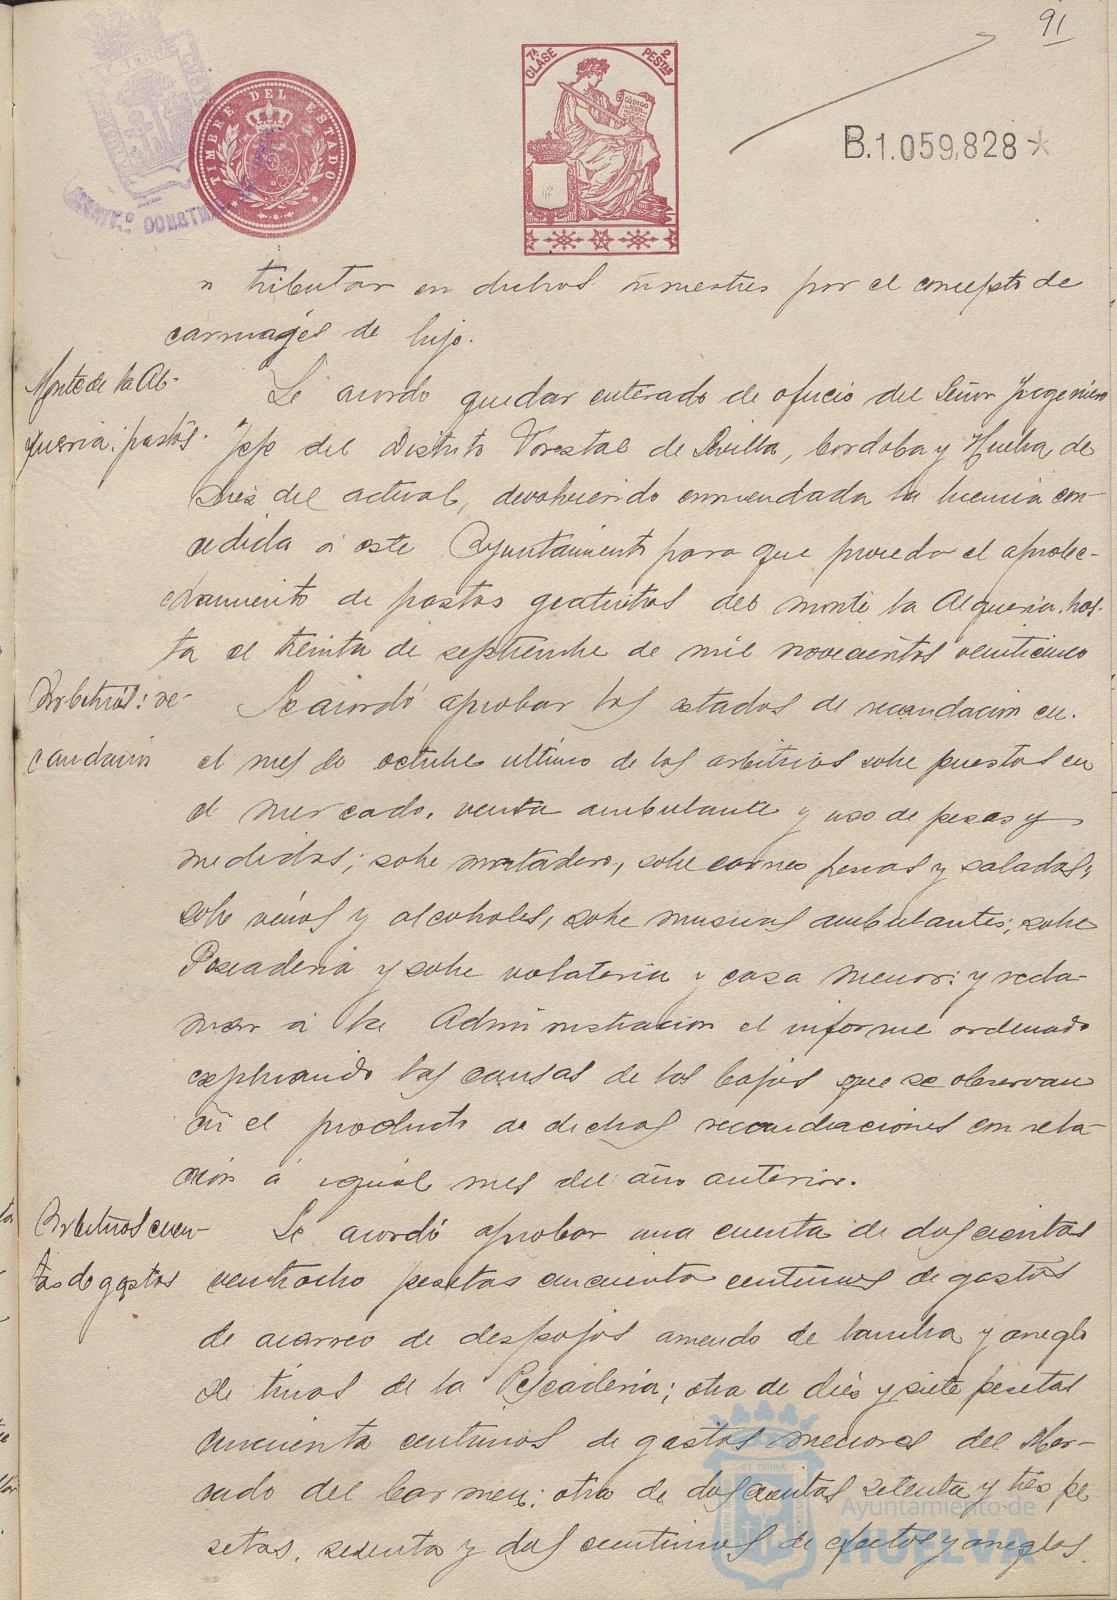 91
7ª CLASE
2 PESTAS
CÓDIGO
TIMBRE DEL ESTADO
B.1.059.828
tributar en dichos trimestres por el concepto de
carruages de lujo.
Monte de la Al-
quería: pastos.
Se acordó quedar enterado de oficio del Señor Ingeniero
Jefe del Distrito Forestal de Sevilla, Cordoba y Huelva, de
del actual, devolviendo enmendada la licencia con-
cedida á este Ayuntamiento para que proceda el aprove-
chamiento de pastos gratuitos del monte la Alqueria, has-
ta el treinta de septiembre de mil novecientos veinticinco
Arbitrios: re-
caudación
Se acordó aprobar los estados de recaudacion en
el mes de octubre ultimo de los arbitrios sobre puestos en
el mercado, venta ambulante y uso de pesas y
medidas; sobre matadero, sobre carnes frescas y saladas,
sobre vinos y alcoholes, sobre musicas ambulantes; sobre
Pescaderia y sobre volateria y caza menor: y recla-
mar á la Administracion el informe ordenado
explicando las causas de las bajas que se observan
en el producto de dichas recaudaciones con rela-
ción á igual mes del año anterior.
Arbitrios cuen-
tas de gastos
Se acordó aprobar una cuenta de doscientas
veintiocho pesetas cincuenta centimos de gastos
de acarreo de despojos arriendo de lancha y arreglo
de tinas de la Pescaderia; otra de diez y siete pesetas
cincuenta centimos de gastos menores del Mer-
cado del Carmen; otra de doscientas setenta y tres pe
setas, sesenta y dos centimos de efectos y arreglos.
Ayuntamiento de
HUELVA